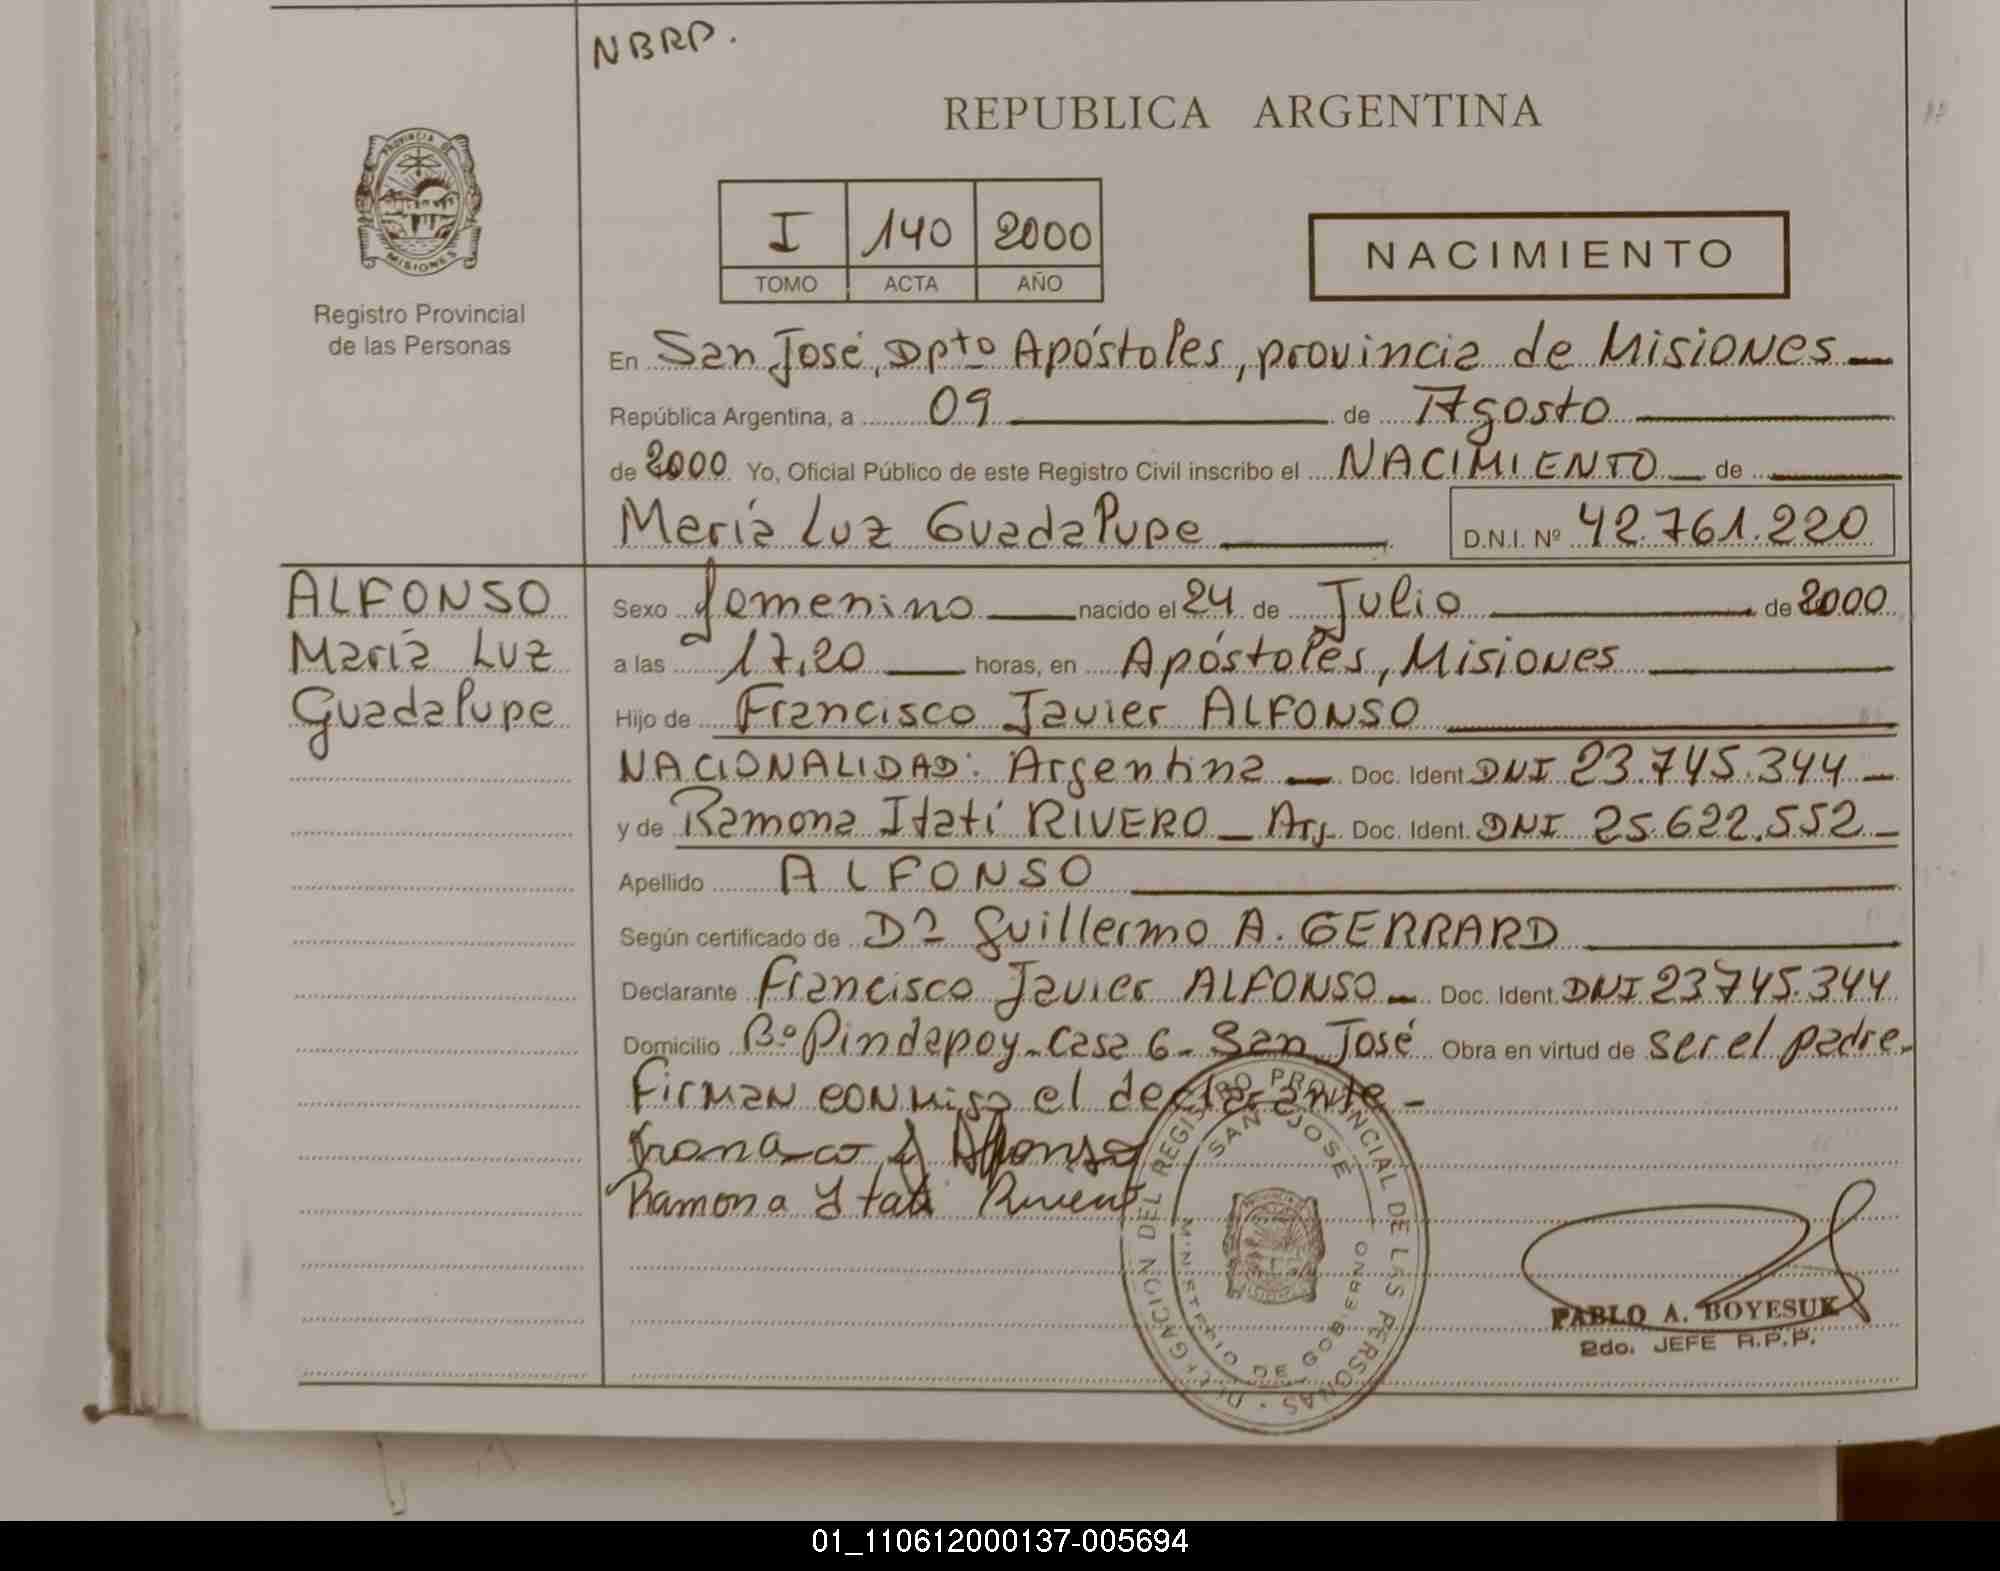 NBRP.
REPUBLICA ARGENTINA
PROVINCIA DE
MISIONES
Registro Provincial
de las Personas
I 140 2000
TOMO ACTA AÑO
NACIMIENTO
En San José, Dpto Apóstoles, provincia de Misiones
República Argentina, a 09 de Agosto
de 2000 Yo, Oficial Público de este Registro Civil inscribo el NACIMIENTO de
María Luz Guadalupe D.N.I. Nº 42.761.220
ALFONSO
María Luz
Guadalupe
Sexo femenino nacido el 24 de Julio de 2000
a las 17,20 horas, en Apóstoles, Misiones
Hijo de Francisco Javier ALFONSO
NACIONALIDAD: Argentina Doc. Ident. DNI 23.745.344
y de Ramona Itatí RIVERO - Arg. Doc. Ident. DNI 25.622.552
Apellido ALFONSO
Según certificado de Dr Guillermo A. GERRARD
Declarante Francisco Javier ALFONSO Doc. Ident. DNI 23745.344
Domicilio Bº Pindapoy - Casa 6 - San José Obra en virtud de ser el padre.
Firman conmigo el declarante -
Alfonso
Ramona Ytati Rivero
DELEGACION DEL REGISTRO PROVINCIAL DE LAS PERSONAS
SAN JOSÉ
MINISTERIO DE GOBIERNO
PABLO A. BOYESUK
2do. JEFE R.P.P.
01_110612000137-005694